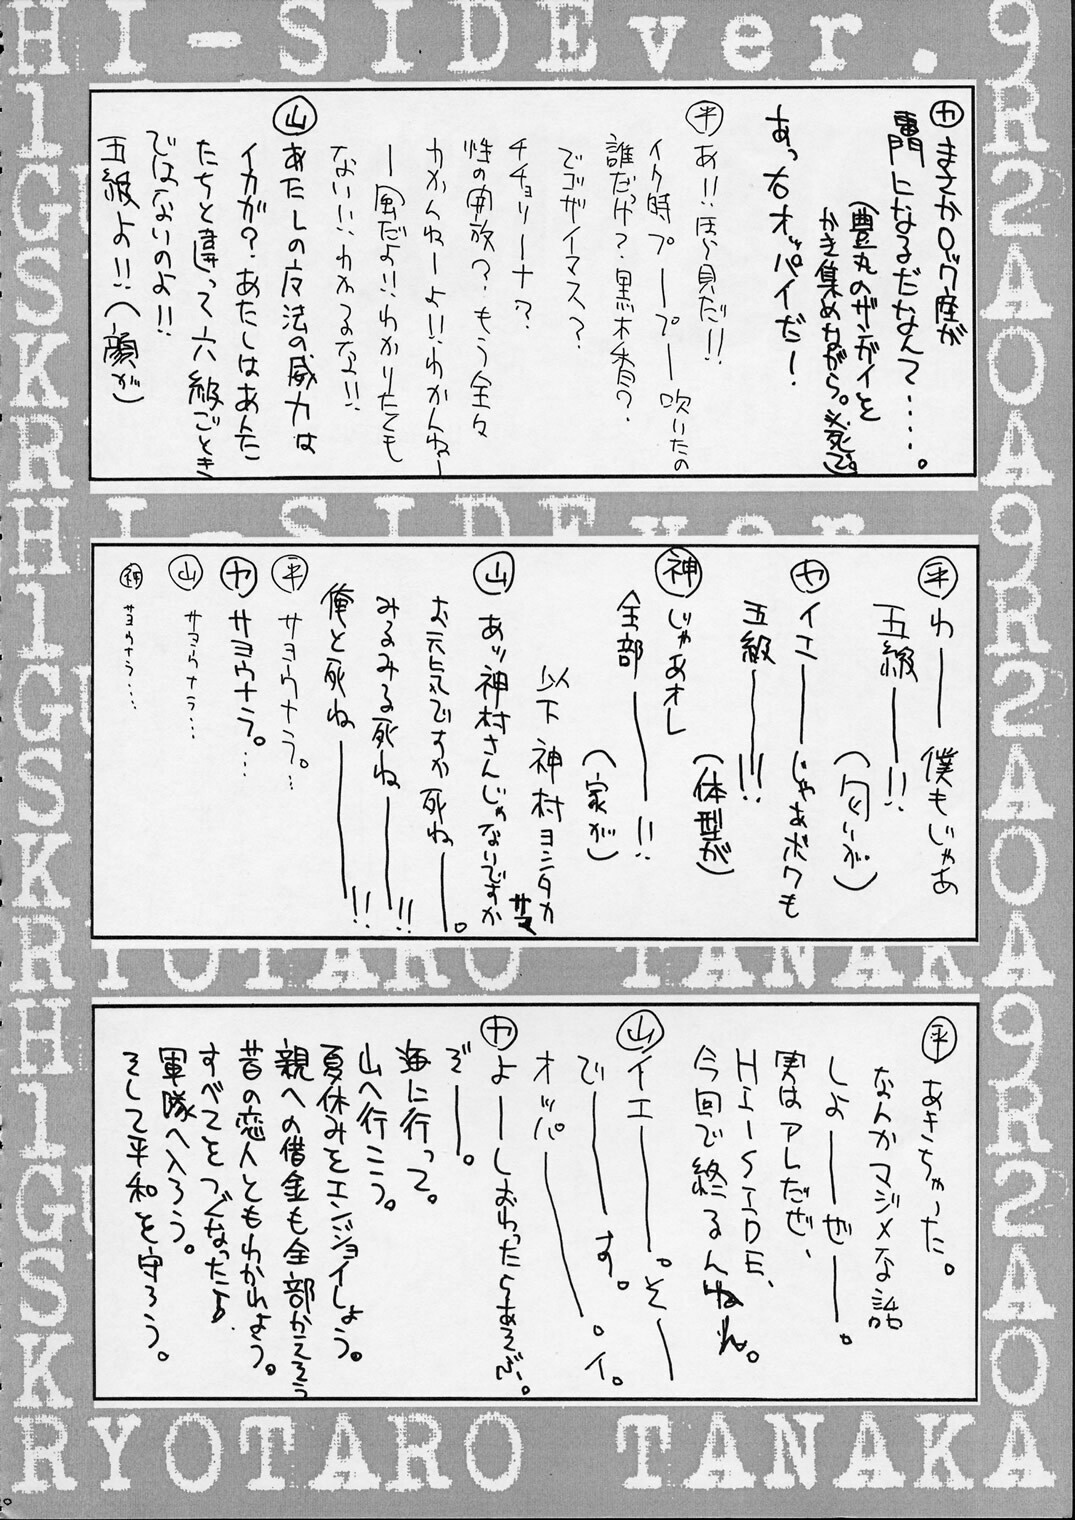 HI-SIDEver.9
カ まさかロック座が
専門になるだなんて・・・・・。
(豊丸のザンガイを
かき集めながら。必死で。)
あっちオッパイだー!
平 あ!!ほら見だ!!
イク時プープー吹いたの
誰だっけ?黒木香?
でゴザイマス?
チチョリーナ?
性の開放?もう全々
わかんねーよ!!わかんねー
ー風だよ!!わかりたくも
ない!!わかるな!!
山 あたしの反法の威力は
イカが?あたしはあんた
たちと違って六級ごとき
ではないのよ!!
五級よ!!(顔が)
HI-SIDEver.
平 わー 僕もじゃあ
五級ー!!
(匂いが)
カ イエーじゃあボクも
五級ー!!!
(体型が)
神 じゃあオレ
全部ー!!
(家が)
以下神村ヨシタカサマ
山 あッ神村さんじゃないですか
お元気ですか死ねー。
みるみる死ねー!!
俺と死ねー!!
平 サヨウナラ。…
カ サヨウナラ。…
山 サヨウナラ…
神 サヨウナラ…
RYOTARO TANAKA
平 あきちゃった。
なんかマジメな話
しよーぜー。
実はアレだぜ、
HI-SIDE、
今回で終るんねん。
山 イエー。そー
でーす。
オッパー。イ。
カ よーしおわったらあそぶ。
ぞー。
海に行って。
山へ行こう。
夏休みをエンジョイしよう。
親への借金も全部かえそう
昔の恋人ともわかれよう。
すべてをつぐなったら
軍隊へ入ろう。
そして平和を守ろう。
RYOTARO TANAKA